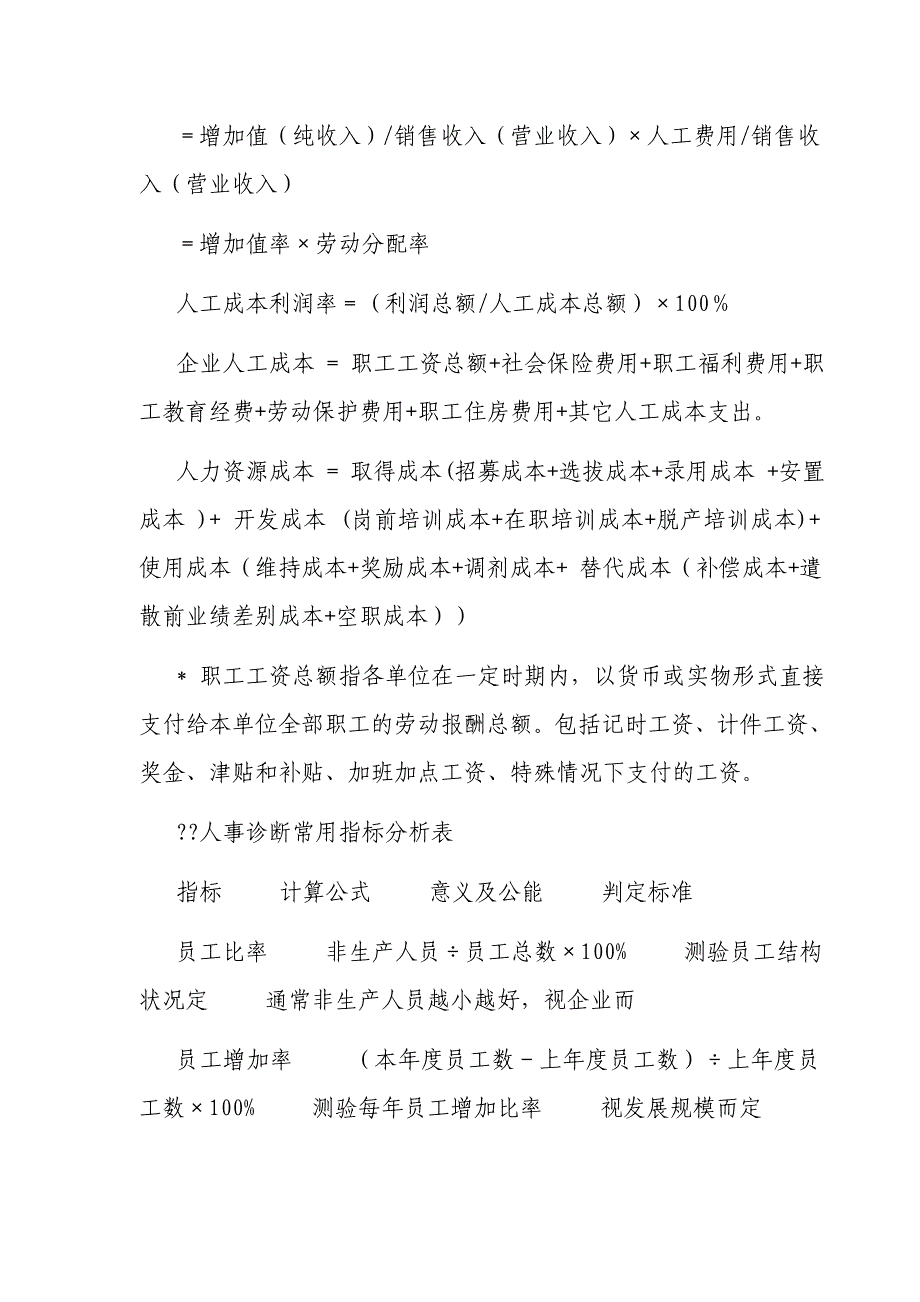 =增加值（纯收入)/销售收入（营业收入）×人工费用/销售收
入（营业收入）
=增加值率×劳动分配率
人工成本利润率=（利润总额/人工成本总额）×100%
企业人工成本 = 职工工资总额+社会保险费用+职工福利费用+职
工教育经费+劳动保护费用+职工住房费用+其它人工成本支出。
人力资源成本 = 取得成本(招募成本+选拔成本+录用成本 +安置
成本 )+ 开发成本 (岗前培训成本+在职培训成本+脱产培训成本)+
使用成本（维持成本+奖励成本+调剂成本+ 替代成本（补偿成本+遣
散前业绩差别成本+空职成本））
* 职工工资总额指各单位在一定时期内，以货币或实物形式直接
支付给本单位全部职工的劳动报酬总额。包括记时工资、计件工资、
奖金、津贴和补贴、加班加点工资、特殊情况下支付的工资。
??人事诊断常用指标分析表
指标 计算公式 意义及公能 判定标准
员工比率 非生产人员÷员工总数×100% 测验员工结构
状况定 通常非生产人员越小越好，视企业而
员工增加率 （本年度员工数－上年度员工数）÷上年度员
工数×100% 测验每年员工增加比率 视发展规模而定